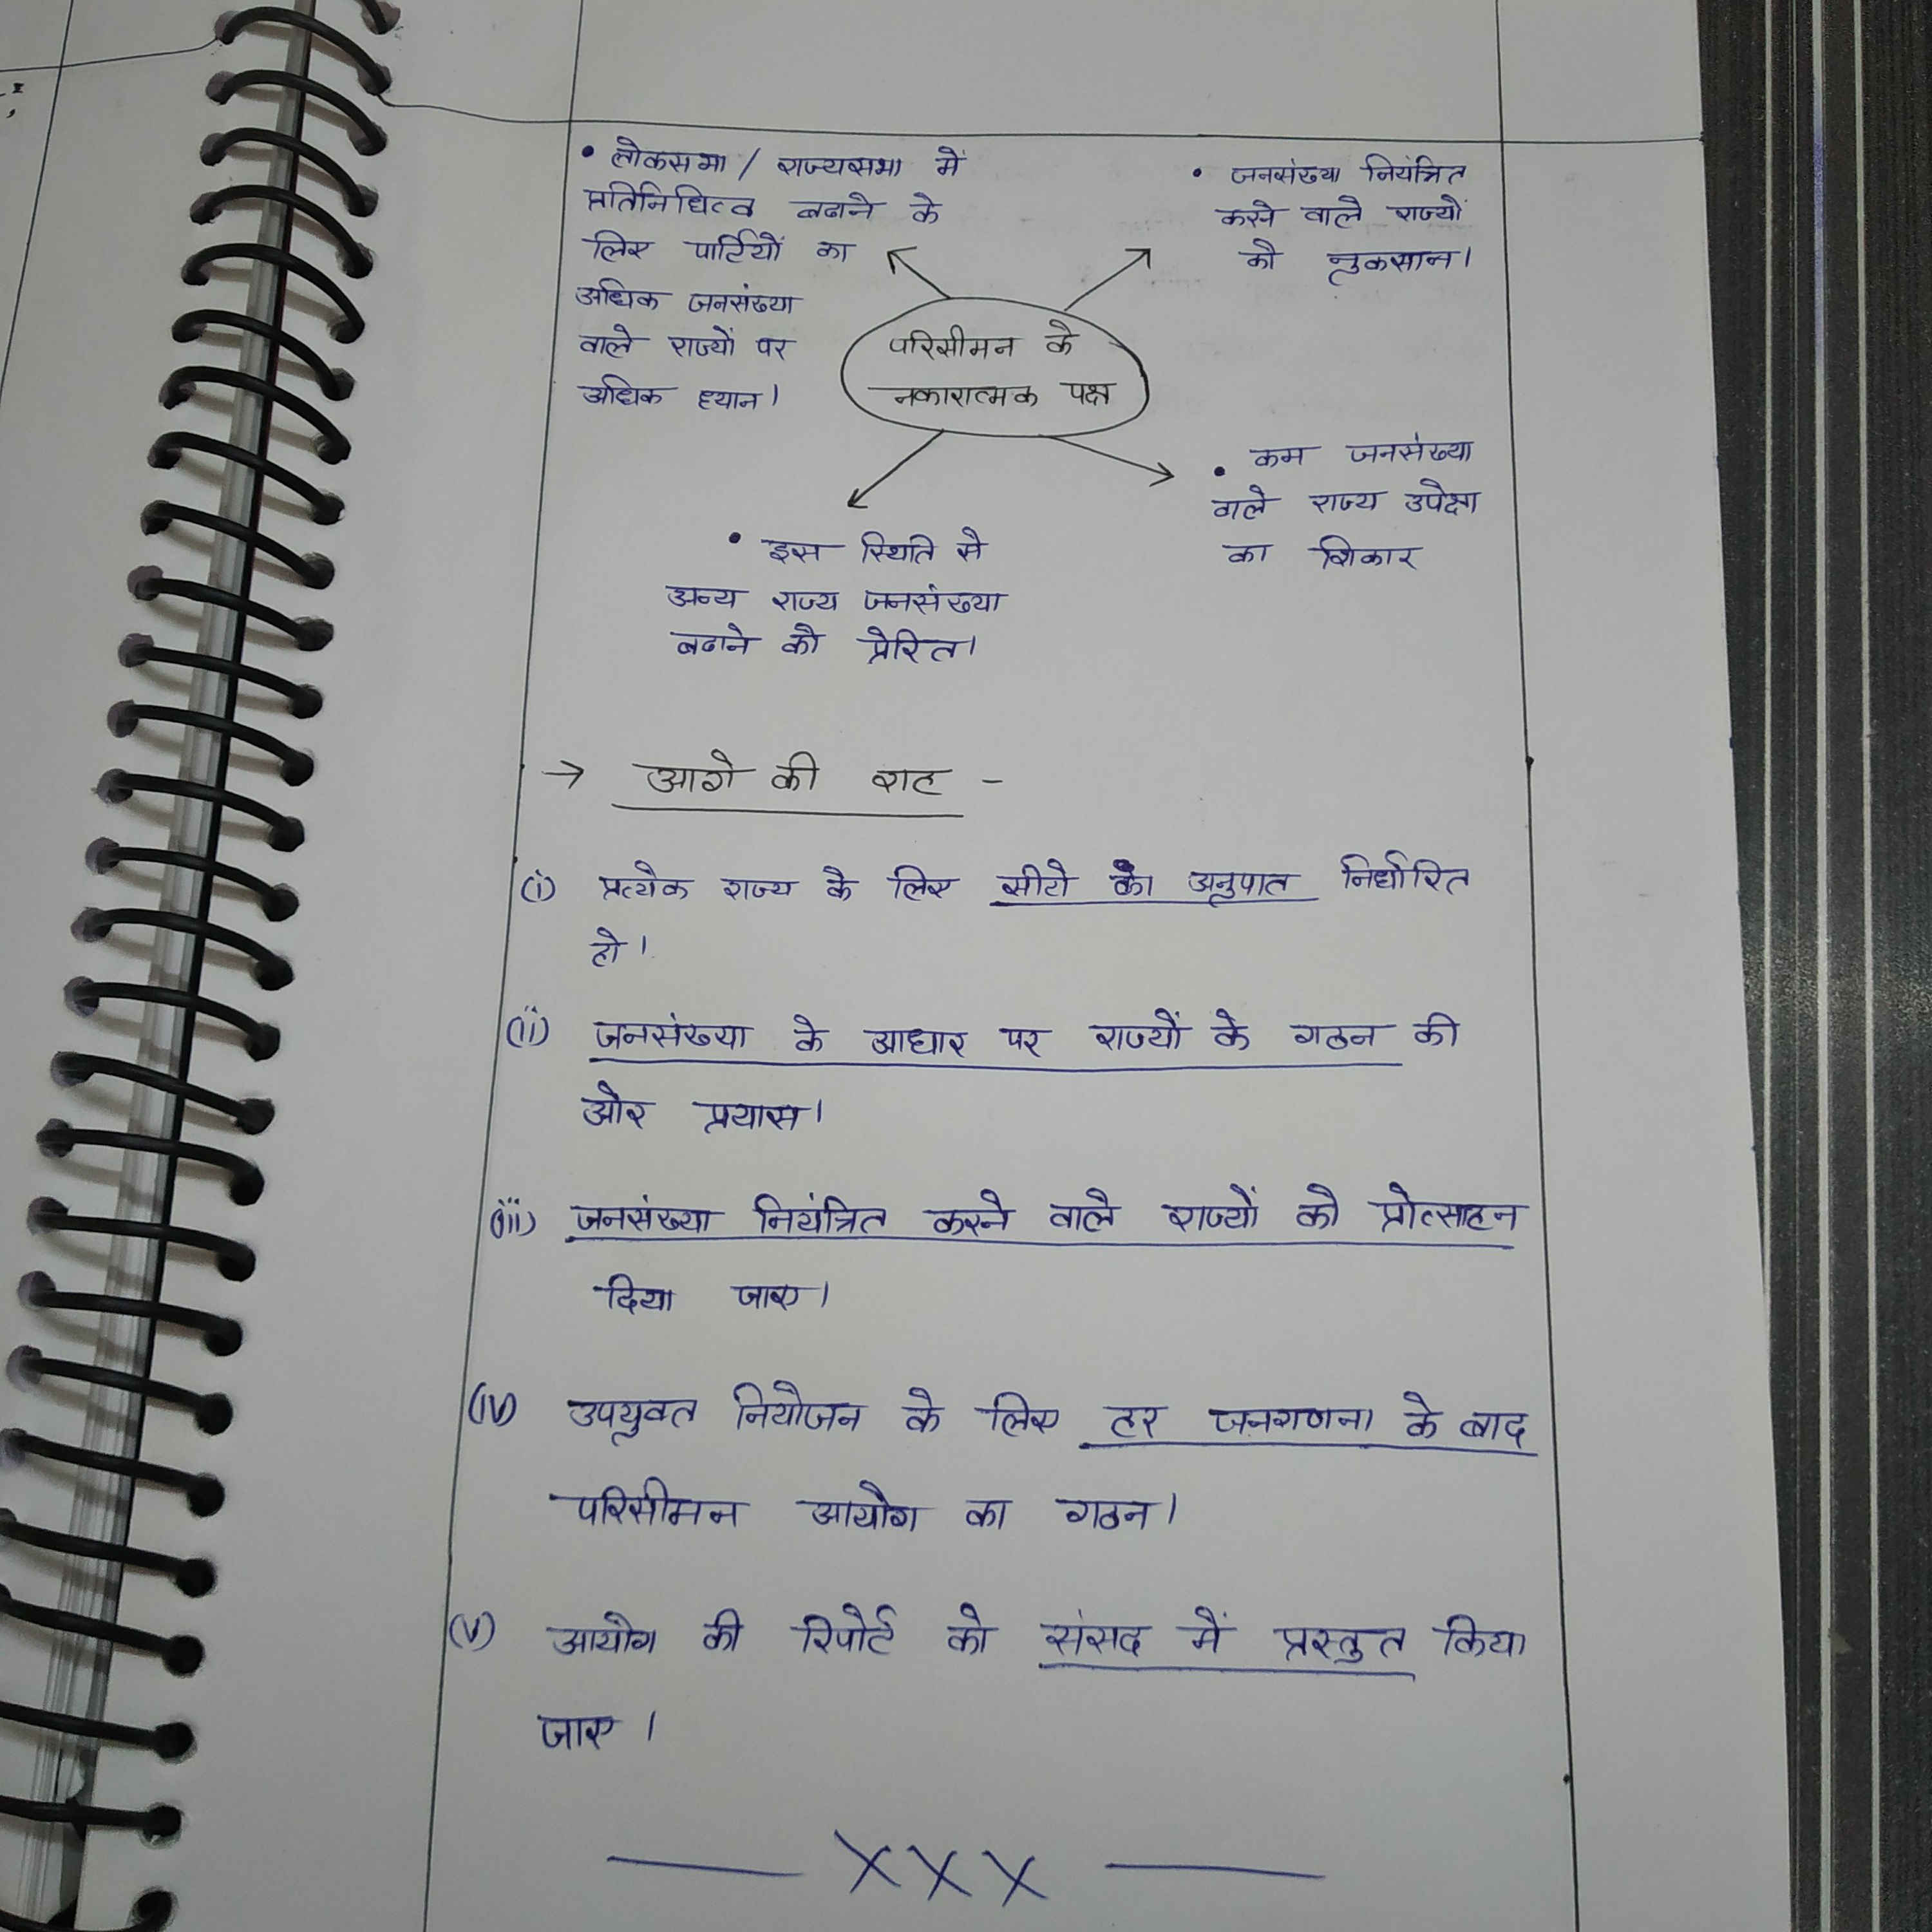 • लोकसभा / राज्यसभा में
प्रतिनिधित्व बढाने के
लिए पार्टियों का
अधिक जनसंख्या
वाले राज्यों पर
अधिक ध्यान।
• जनसंख्या नियंत्रित
करने वाले राज्यों
को नुकसान।
परिसीमन के
नकारात्मक पक्ष
• कम जनसंख्या
वाले राज्य उपेक्षा
का शिकार
• इस स्थिति से
अन्य राज्य जनसंख्या
बढाने को प्रेरित।
→ आगे की राह -
(i) प्रत्येक राज्य के लिए सीटो का अनुपात निर्धारित
हो।
(ii) जनसंख्या के आधार पर राज्यों के गठन की
ओर प्रयास।
(iii) जनसंख्या नियंत्रित करने वाले राज्यों को प्रोत्साहन
दिया जाए।
(iv) उपयुक्त नियोजन के लिए हर जनगणना के बाद
परिसीमन आयोग का गठन।
(v) आयोग की रिपोर्ट को संसद में प्रस्तुत किया
जाए।
— XXX —